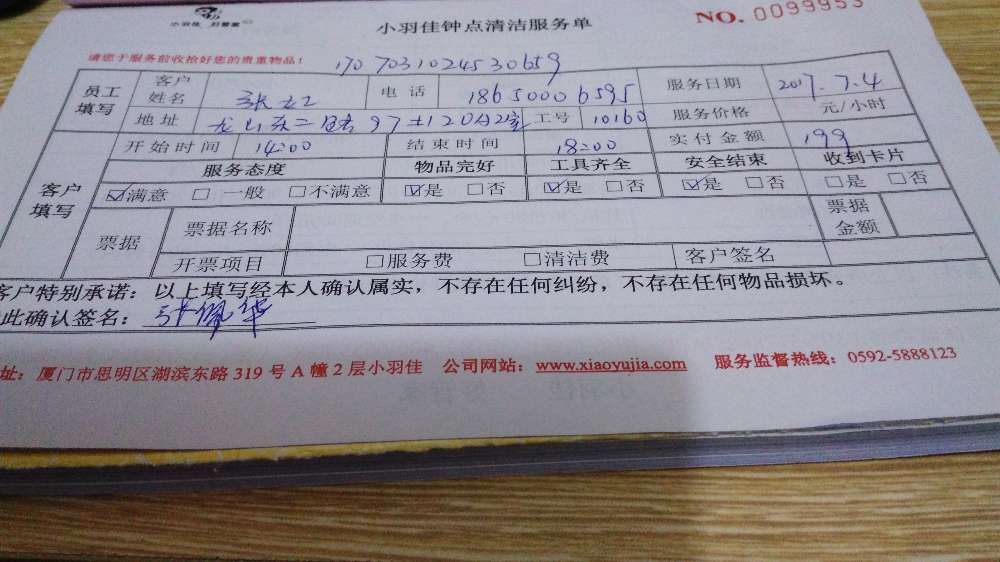 小羽佳 好管家
小羽佳钟点清洁服务单
NO. 0099953
请您于服务前收拾好您的贵重物品！
17070310245 30659
员工填写 客户姓名 张 电话 18650006595 服务日期 2017.7.4
地址 龙山东二路97 1202室 工号 10160 服务价格 元/小时
开始时间 14:00 结束时间 18:00 实付金额 199
客户填写 服务态度 物品完好 工具齐全 安全结束 收到卡片
☑满意 □一般 □不满意 ☑是 □否 ☑是 □否 ☑是 □否 □是 □否
票据 票据名称 票据金额
开票项目 □服务费 □清洁费 客户签名
客户特别承诺：以上填写经本人确认属实，不存在任何纠纷，不存在任何物品损坏。
此确认签名：张佩华
址：厦门市思明区湖滨东路 319 号 A 幢 2 层小羽佳 公司网站：www.xiaoyujia.com 服务监督热线：0592-5888123